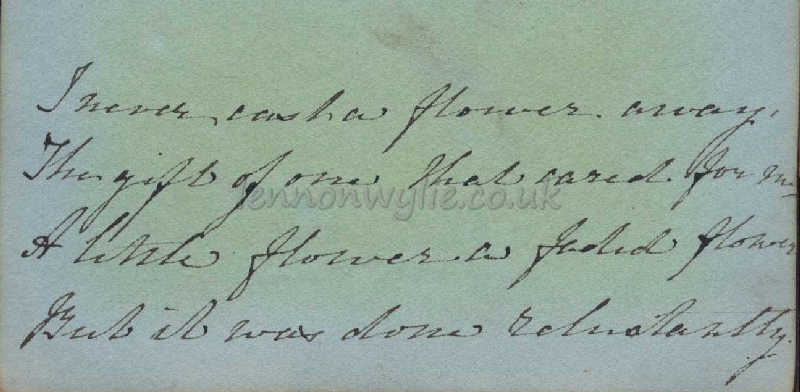 I never cast a flower away,
The gift of one that cared for me
A little flower a faded flower
But it was done reluctantly.
lennonwylie.co.uk